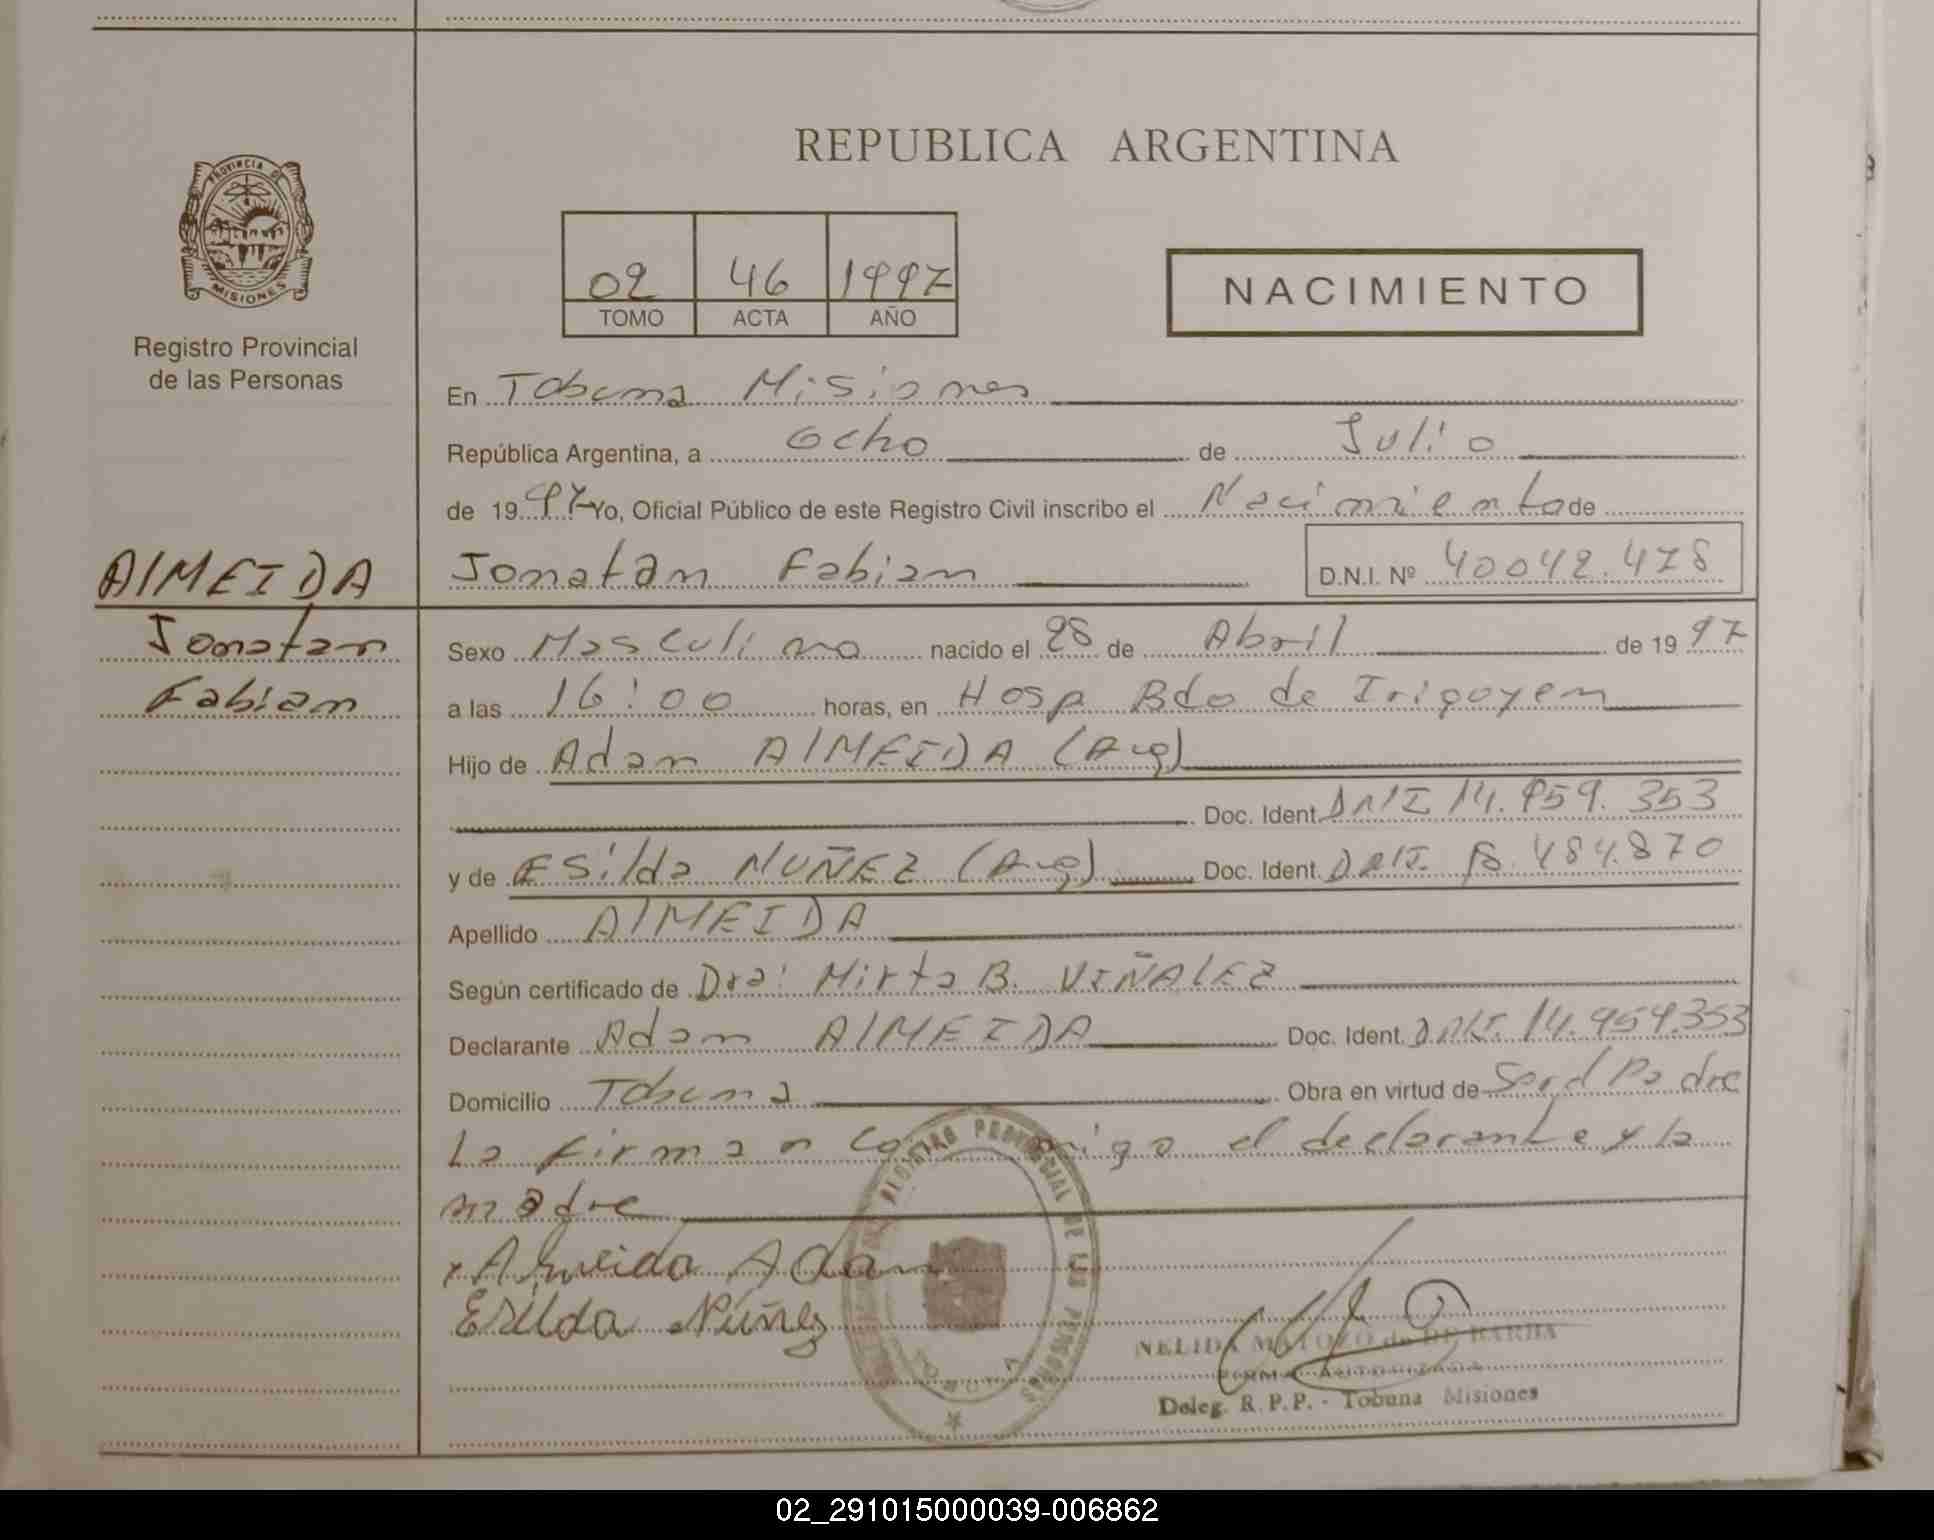 REPUBLICA ARGENTINA
PROVINCIA DE
MISIONES
Registro Provincial
de las Personas
02 46 1997
TOMO ACTA AÑO
NACIMIENTO
En Tobuna Misiones
República Argentina, a Ocho de Julio
de 1997 Yo, Oficial Público de este Registro Civil inscribo el Nacimiento de
AlMEIDA
Jonatan Fabian D.N.I. Nº 40042.478
Jonatan
Fabian
Sexo Masculino nacido el 28 de Abril de 1997
a las 16:00 horas, en Hosp Bdo de Irigoyen
Hijo de Adan AlMEIDA (Arg)
Doc. Ident. DNI 14.959.353
y de Esilda NUÑEZ (Arg) Doc. Ident. DNI. 484.870
Apellido AlMEIDA
Según certificado de Dra: Mirta B. VIÑAlEZ
Declarante Adan AlMEIDA Doc. Ident. DNI. 14.959.353
Domicilio Tobuna Obra en virtud de Padre
La firman conmigo el declarante y la
madre
x Almeida Adan
Esilda Núñez
REGISTRO PROVINCIAL DE LAS PERSONAS
NELIDA MATOZO de DE BARBA
FIRMA AUTORIZADA
Deleg. R. P. P. - Tobuna Misiones
02_291015000039-006862